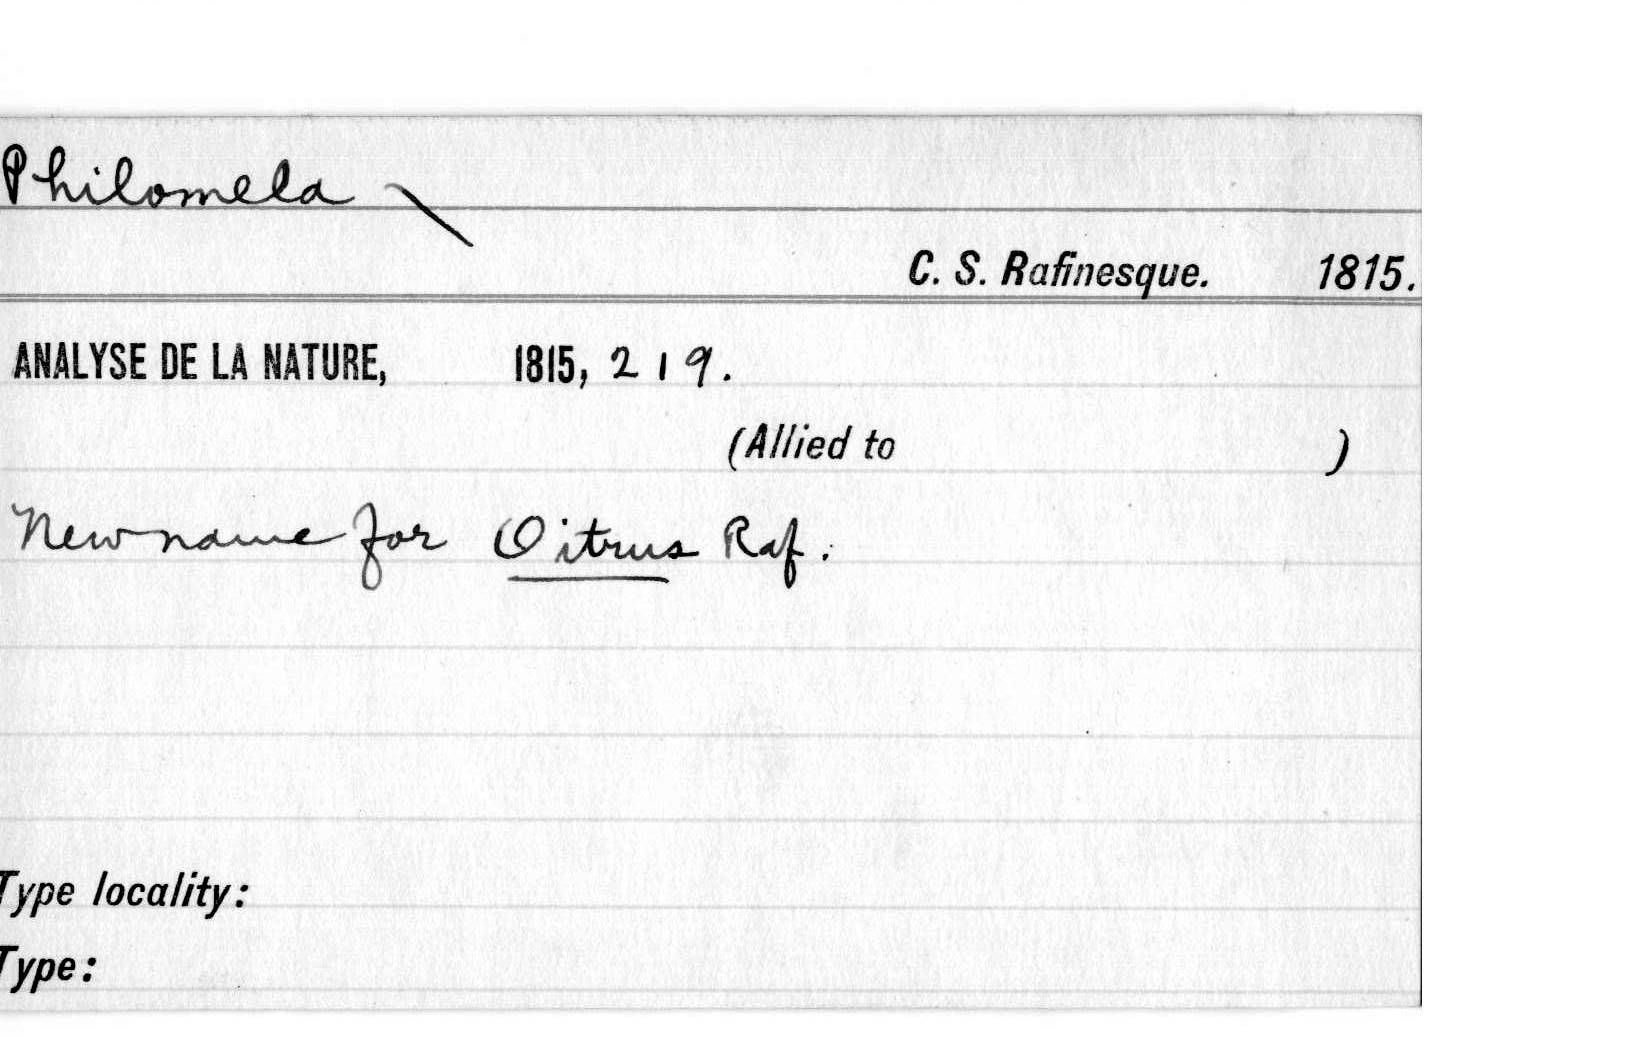 Philomela
C. S. Rafinesque. 1815.
ANALYSE DE LA NATURE, 1815, 219.
(Allied to )
New name for Oitrus Raf.
Type locality:
Type: